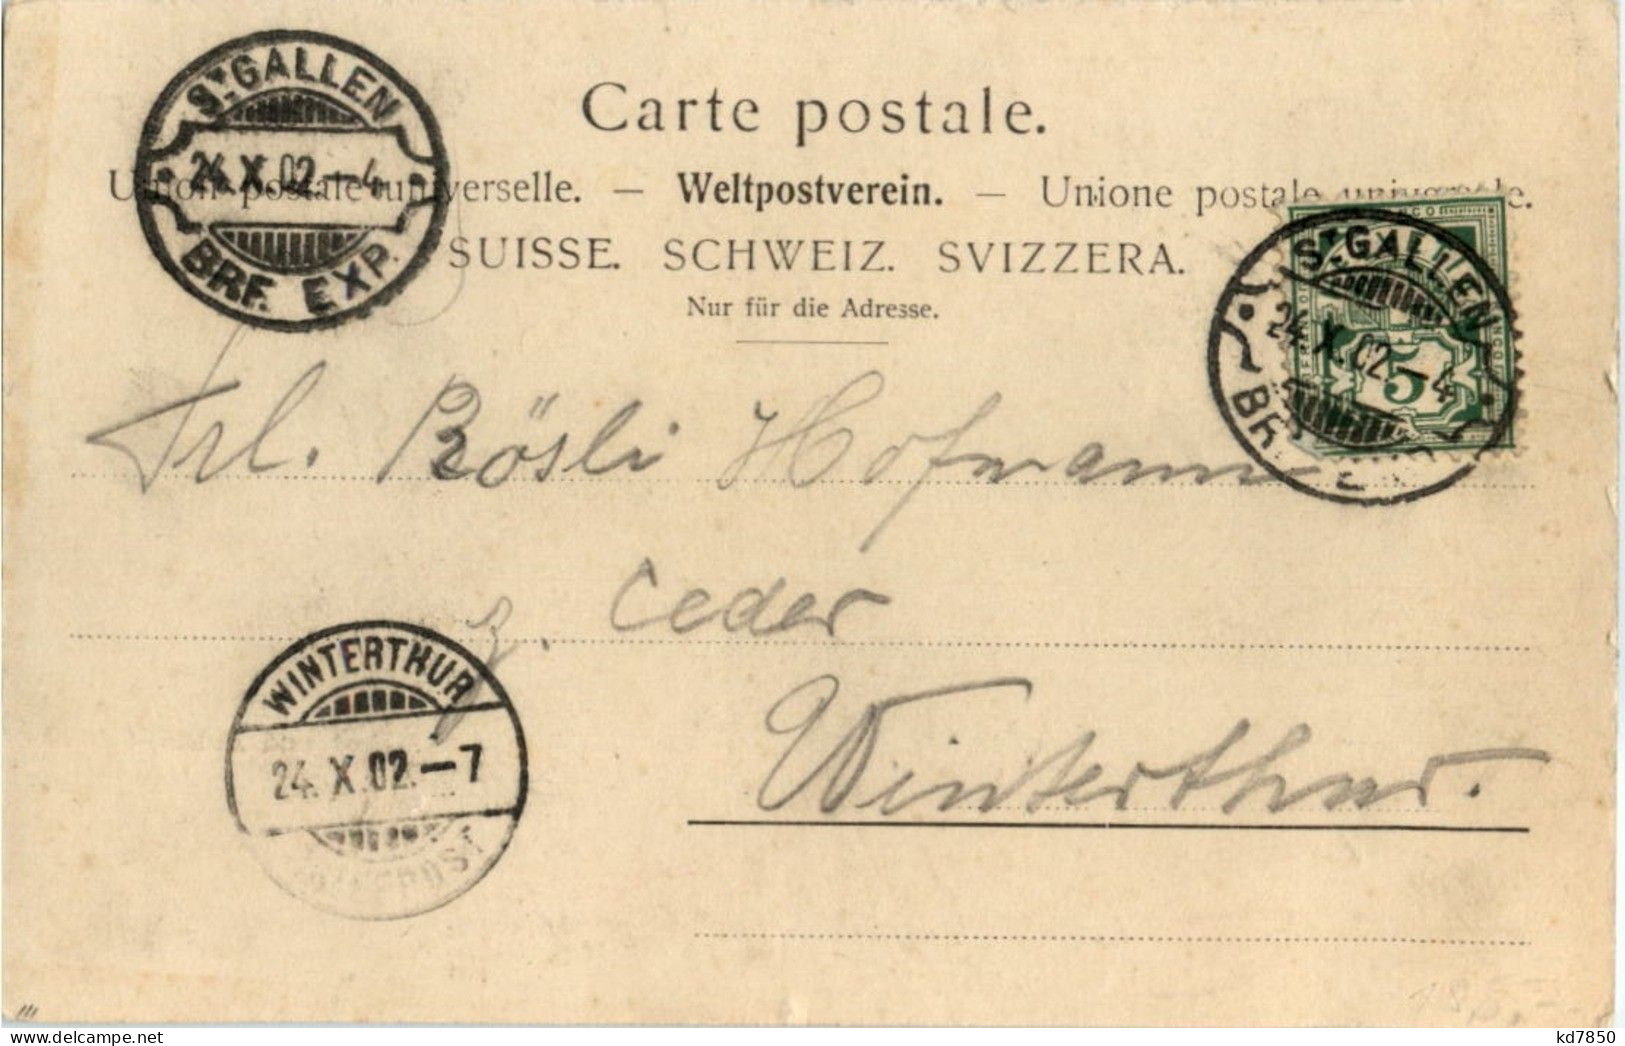 Carte postale.
Union postale universelle. — Weltpostverein. — Unione postale universale.
SUISSE. SCHWEIZ. SVIZZERA.
Nur für die Adresse.
St. GALLEN
24.X.02.–4
BRF. EXP.
St. GALLEN
24.X.02.–4
5
Frl. Rösli Hofmann
z. Ceder
Winterthur.
WINTERTHUR
24.X.02.–7
delcampe.net
kd7850